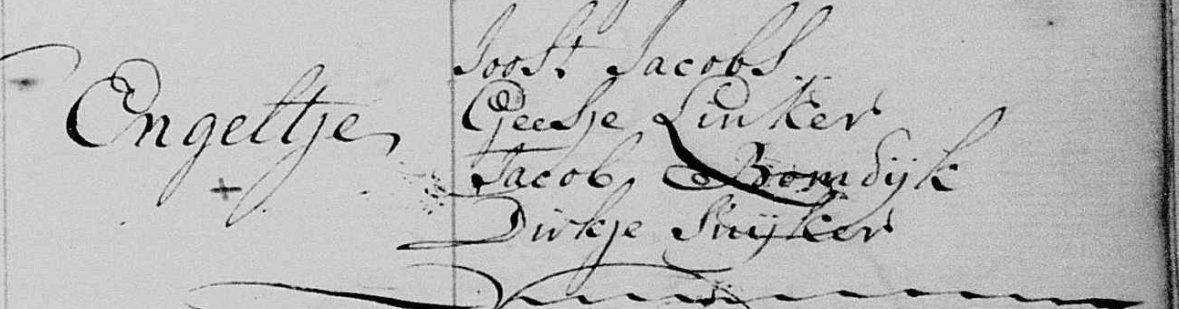 Engeltje
Joost Jacobs
Geesje Linker
Jacob Bomdijk
Dirkje Suijker